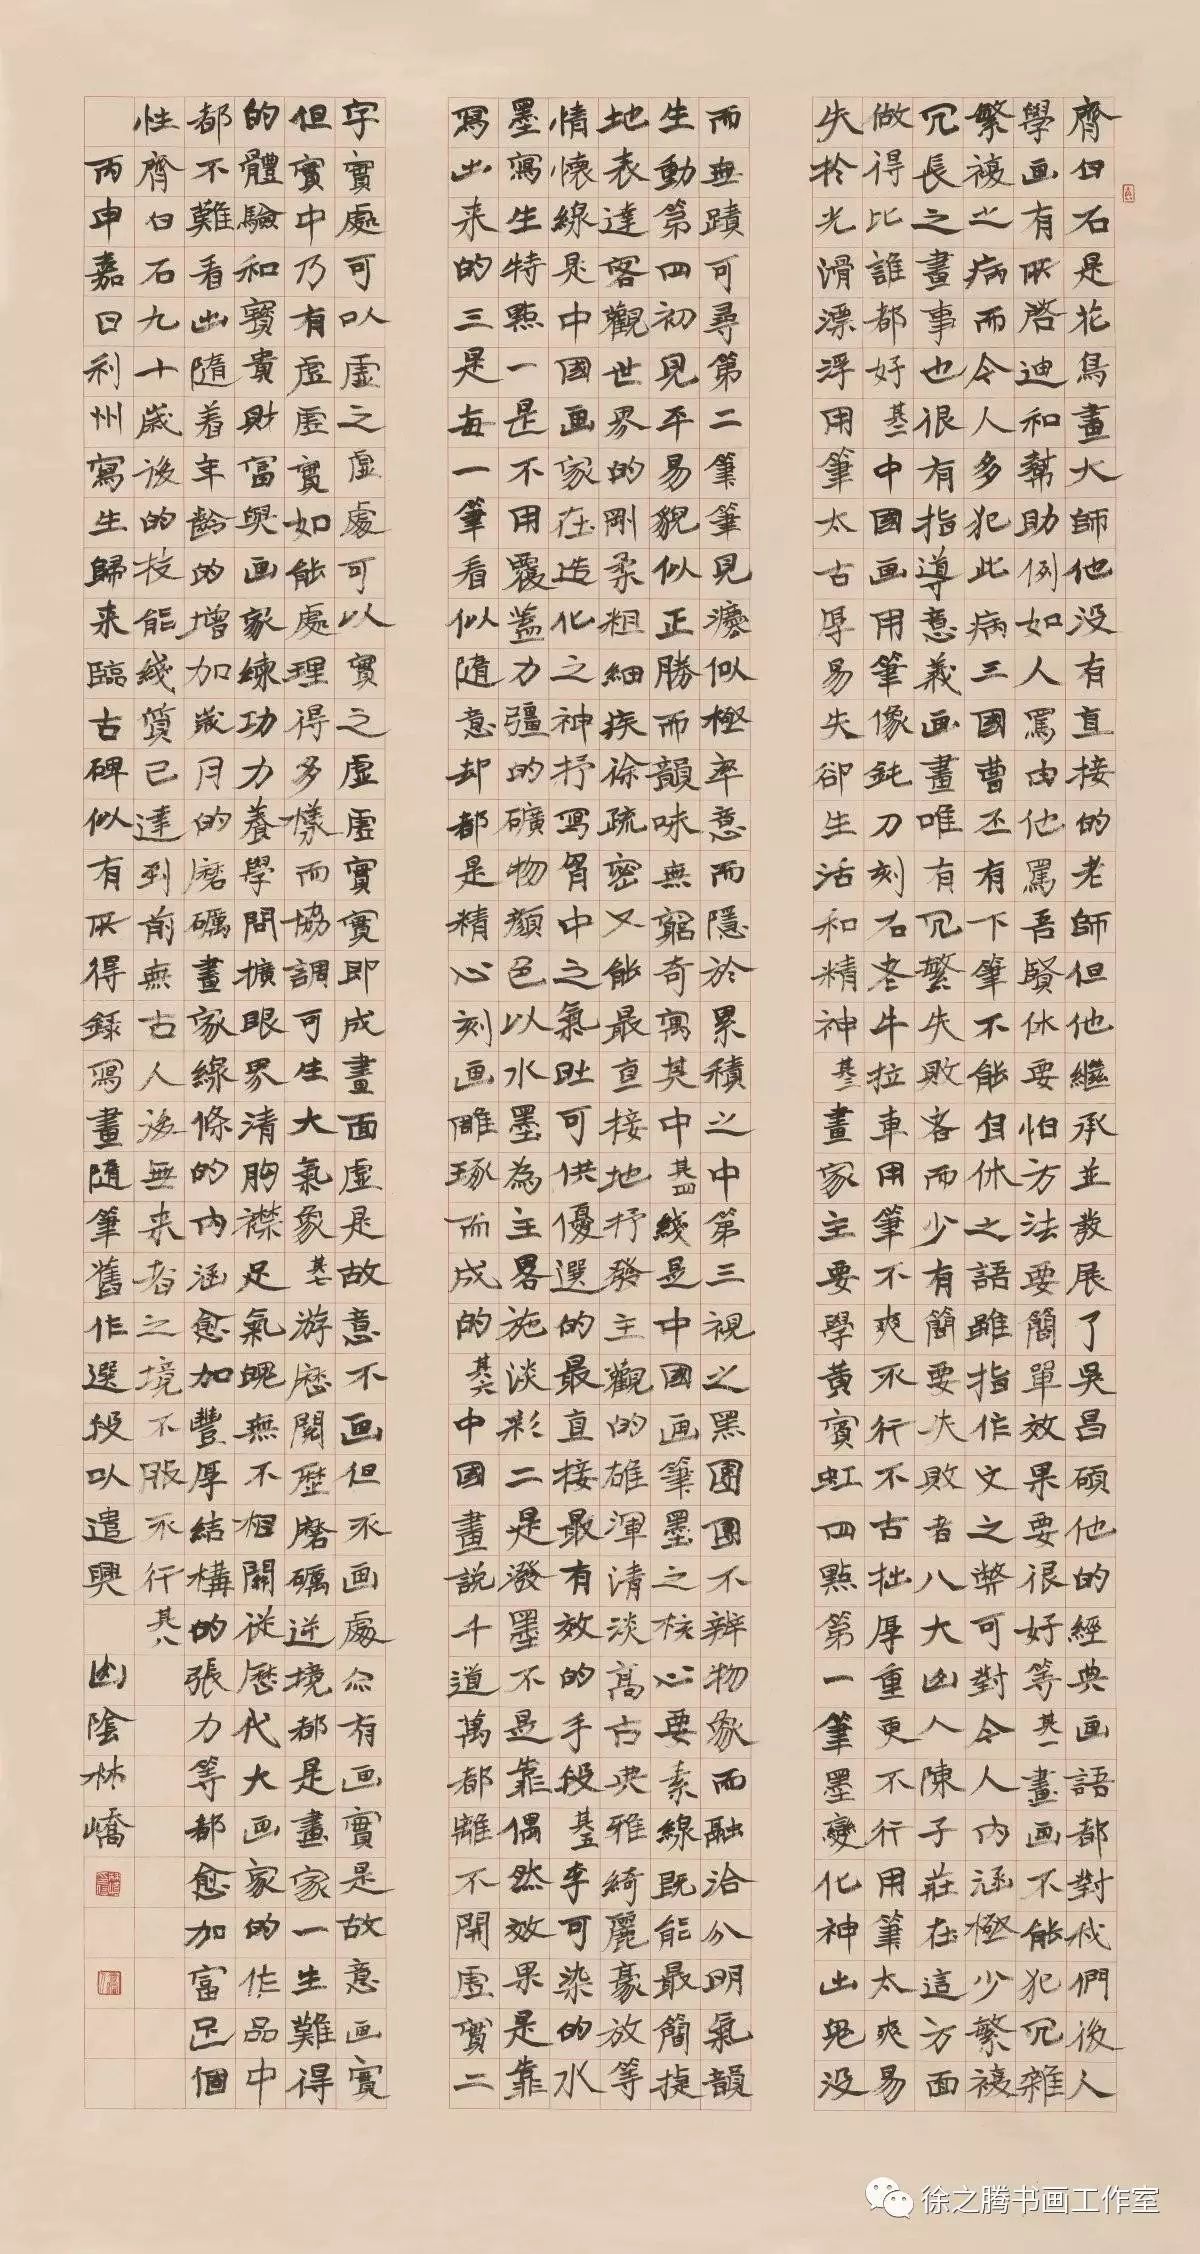 齊白石是花鳥畫大師他没有直接的老師但他繼承並發展了吴昌碩他的經典画語都對我們後人
學画有所啓迪和幫助例如人罵由他罵吾賢休要怕方法要簡單效果要很好等其一畫画不能犯冗雜
繁複之病而令人多犯此病三國曹丕有下筆不能自休之語雖指作文之弊可對今人内涵極少繁複
冗長之畫事也很有指導意義画畫唯有冗繁失敗者而少有簡要失敗者八大山人陳子莊在這方面
做得比誰都好其二中國画用筆像鈍刀刻石老牛拉車用筆不爽不行不古拙厚重更不行用筆太爽易
失於光滑漂浮用筆太古厚易失卻生活和精神其三畫家主要學黄賓虹四點第一筆墨變化神出鬼没
而無蹟可尋第二筆筆見瀽似極率意而隱於累積之中第三視之黑團團不辨物象而融洽分明氣韻
生動第四初見平易貌似正勝而韻味無窮奇寓其中其四綫是中國画筆墨之核心要素線既能最簡捷
地表達客觀世界的剛柔粗細疾徐疏密又能最直接地抒發主觀的雄渾清淡高古典雅綺麗豪放等
情懷線是中國画家在造化之神抒寫胷中之氣吐可供優選的最直接最有效的手段其五李可染的水
墨寫生特點一是不用覆蓋力彊的礦物顏色以水墨為主畧施淡彩二是潑墨不是靠偶然效果是靠
寫出来的三是每一筆看似隨意却都是精心刻画雕琢而成的其六中國畫説千道萬都離不開虚實二
字實處可以虚之虚處可以實之虚虚實實即成畫面虚是故意不画但不画處亦有画實是故意画實
但實中乃有虚虚實如能處理得多樣而協調可生大氣象其七游歷閲歷磨礪逆境都是畫家一生難得
的體驗和寶貴財富與画家練功力養學問擴眼界清胸襟足氣魄無不相關從歷代大画家的作品中
都不難看出隨着年齡的增加歲月的磨礪畫家線條的内涵愈加豐厚結構的張力等都愈加富足個
性齊白石九十歲後的技能綫質已達到前無古人後無来者之境不服不行其八
丙申嘉日利州寫生歸来臨古碑似有所得録寫畫隨筆舊作選段以遣興 山陰林嶠
徐之腾书画工作室